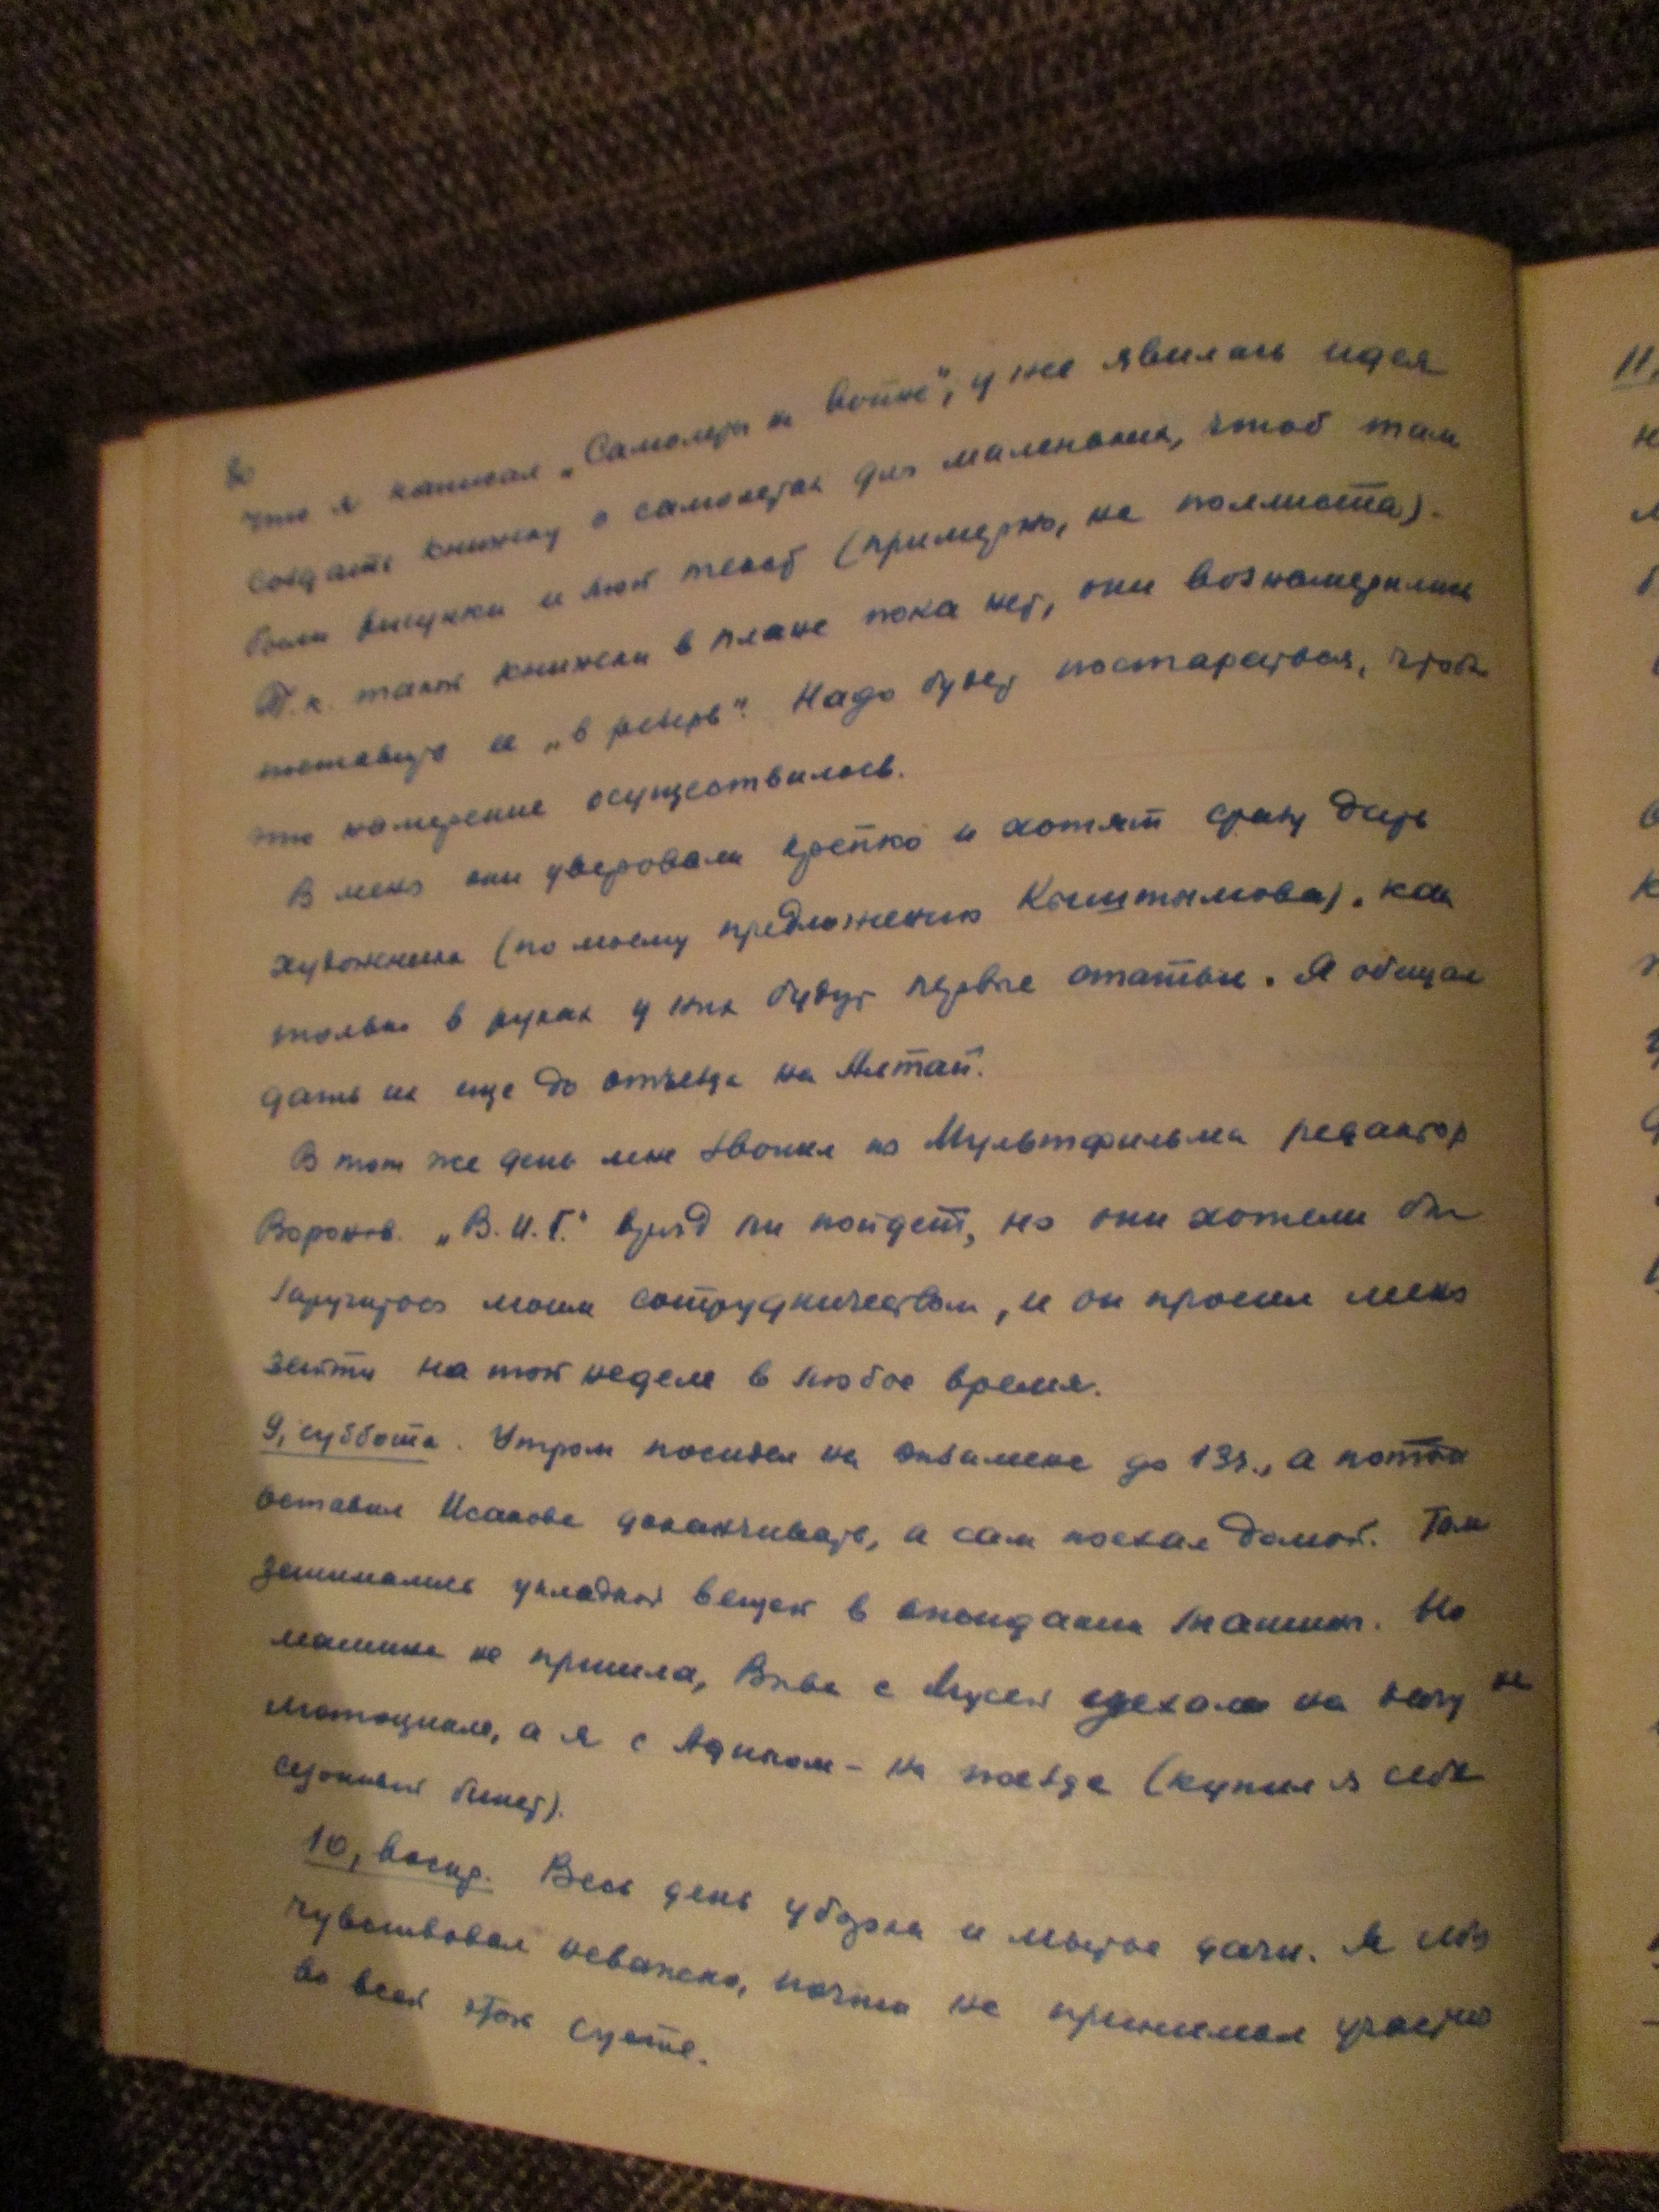 80
что я написал „Самолеты на войне", у нее явилась идея
создать книжку о самолетах для маленьких, чтоб там
были рисунки и мой текст (примерно, не полллиста).
Т.к. такой книжки в плане пока нет, они вознамерились
поставить ее „в резерв". Надо будет постараться, чтобы
это намерение осуществилось.
В меня они уверовали крепко и хотят сразу дать
художника (по моему предложению Кыштымова), как
только в руках у них будут первые статьи. Я обещал
дать их еще до отъезда на Алтай.
В тот же день мне звонил из Мультфильма редактор
Воронов. „В.И.Г." вряд ли пойдет, но они хотели бы
заручиться моим сотрудничеством, и он просил меня
зайти на той неделе в любое время.
9, суббота. Утром посидел на экзамене до 13ч., а потом
оставил Исакова доканчивать, а сам поехал домой. Там
занимались укладкой вещей в ожидании машины. Но
машина не пришла, Вива с Мусей уехали на дачу на
мотоцикле, а я с Адиком – на поезде (купил я себе
сезонный билет).
10, воскр. Весь день уборка и мытье дачи. Я себя
чувствовал неважно, почти не принимал участия
во всей этой суете.
11,